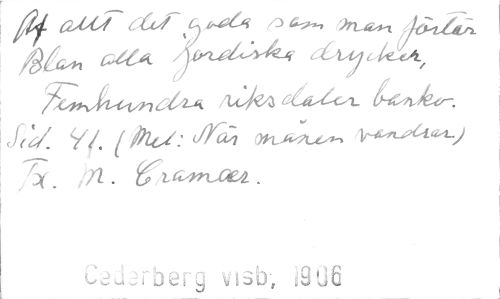 Af allt det goda som man förtär
Blan alla jordiska drycker,
Femhundra riksdaler banko.
Sid. 41. (Mel: När månen vandrar)
Tx. M. Cramær.
Cederberg visb, 1906